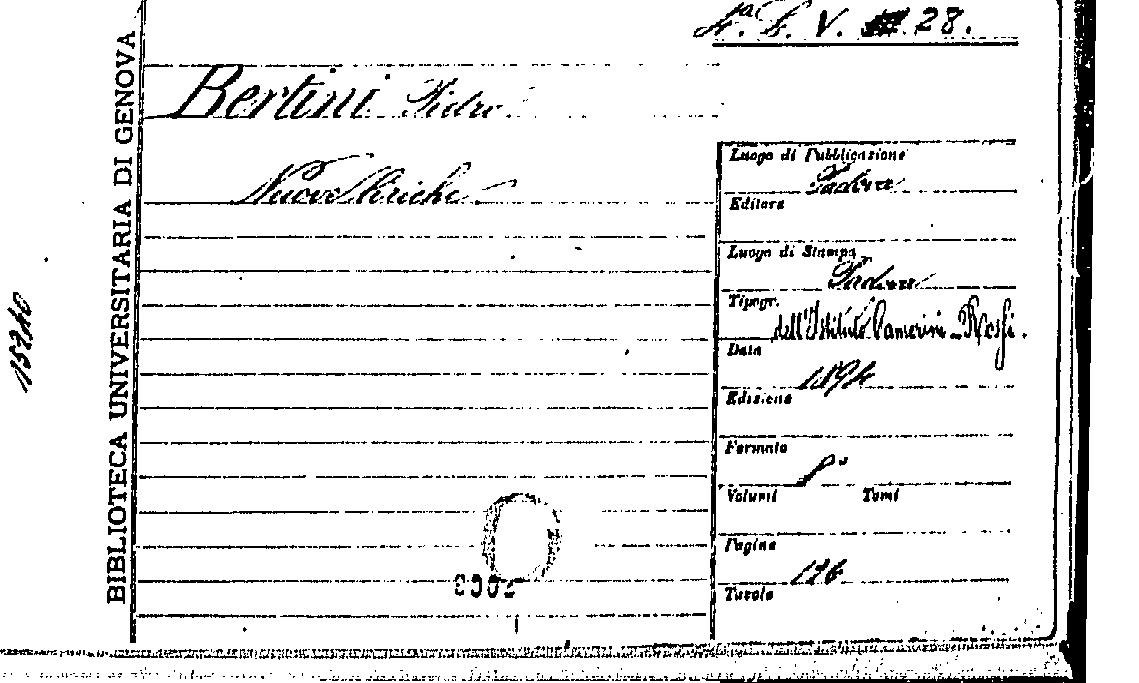 4ª. L. V. 28.
Bertini Pietro
Nuove liriche
Luogo di Pubblicazione
Padova
Editore
Luogo di Stampa
Padova
Tipogr.
dell'Istituto Camerini-Rossi.
Data
1894
Edizione
Formato
8°
Volumi Tomi
Pagine
126
Tavole
BIBLIOTECA UNIVERSITARIA DI GENOVA